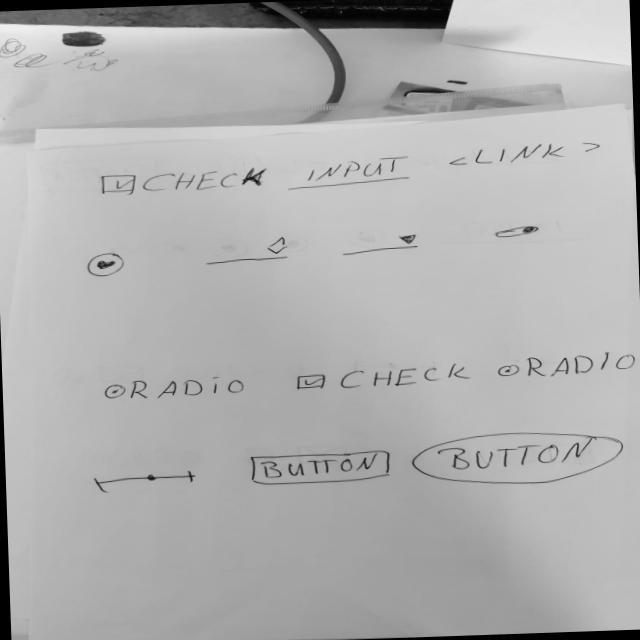 CHECK INPUT <LINK>
RADIO CHECK RADIO
BUTTON BUTTON